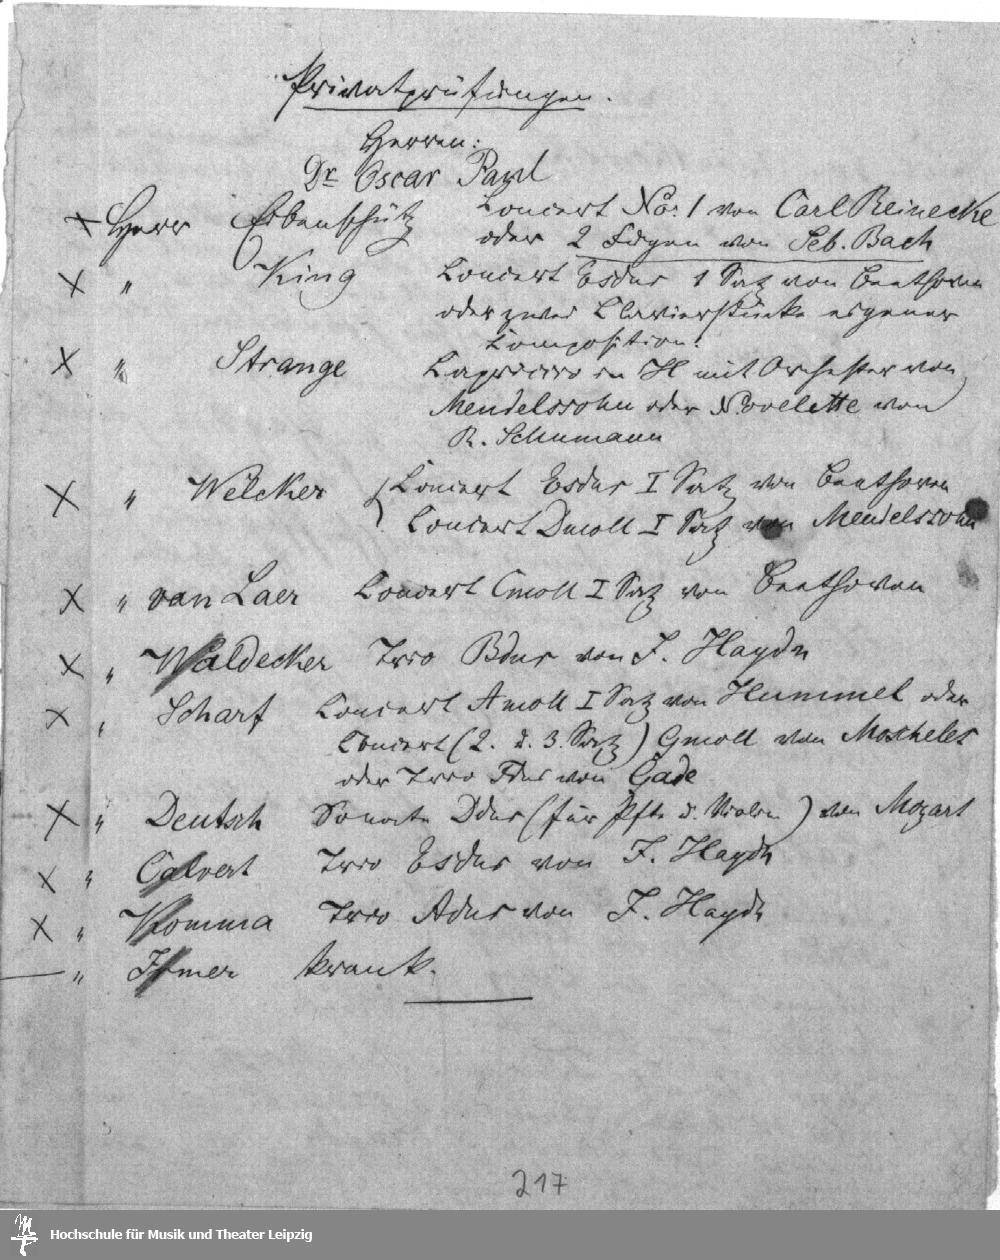 Privatprüfungen.
Herren:
Dr Oscar Paul
× Herr Eibenschütz Concert No. 1 von Carl Reinecke
oder 2 Fugen von Seb. Bach
× " King Concert Esdur 1 Satz von Beethoven
oder zwei Clavierstücke eigener
Composition.
× " Strange Capriccio in H mit Orchester von
Mendelssohn oder Novelette von
R. Schumann
× " Welcker { Concert Esdur I Satz von Beethoven
Concert Dmoll I Satz von Mendelssohn
× " van Laer Concert Cmoll I Satz von Beethoven
× " Waldecker Trio Bdur von J. Haydn
× " Scharf Concert Amoll I Satz von Hummel oder
Concert (2. u. 3. Satz) Gmoll von Moscheles
oder Trio Fdur von Gade
× " Deutsch Sonate Ddur (für Pfte u. Violin) von Mozart
× " Calvert Trio Esdur von J. Haydn
× " Komma Trio Adur von J. Haydn
— " Irmer krank.
217
Hochschule für Musik und Theater Leipzig